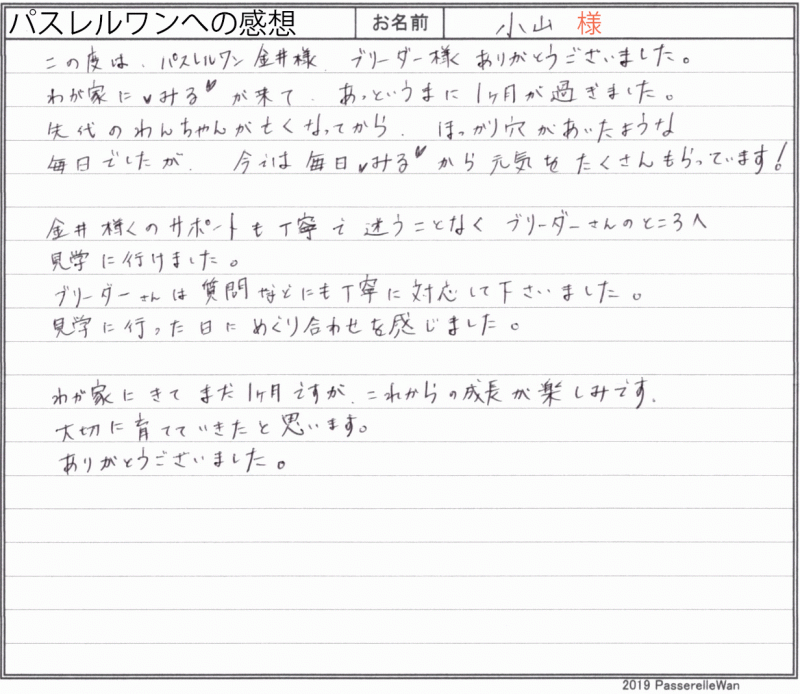 パスレルワンへの感想 お名前 小山 様
この度は、パスレルワン金井様、ブリーダー様くありがとうございました。
わが家に♥みる♥が来て、あっというまに1ヶ月が過ぎました。
先代のわんちゃんが亡くなってから、ぽっかり穴があいたような
毎日でしたが、今では毎日♥みる♥から元気をたくさんもらっています!
金井様くのサポートも丁寧で迷うことなくブリーダーさんのところへ
見学に行けました。
ブリーダーさんは質問などにも丁寧に対応して下さいました。
見学に行った日にめぐり合わせを感じました。
わが家にきてまだ1ヶ月ですが、これからの成長が楽しみです。
大切に育てていきたと思います。
ありがとうございました。
2019 PasserelleWan